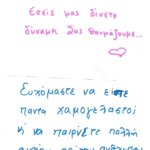 Εσείς μας δίνετε
δύναμη Σας θαυμάζουμε...
Ευχόμαστε να είστε
πάντα χαμογελαστοί
ή να παίρνετε πολλή